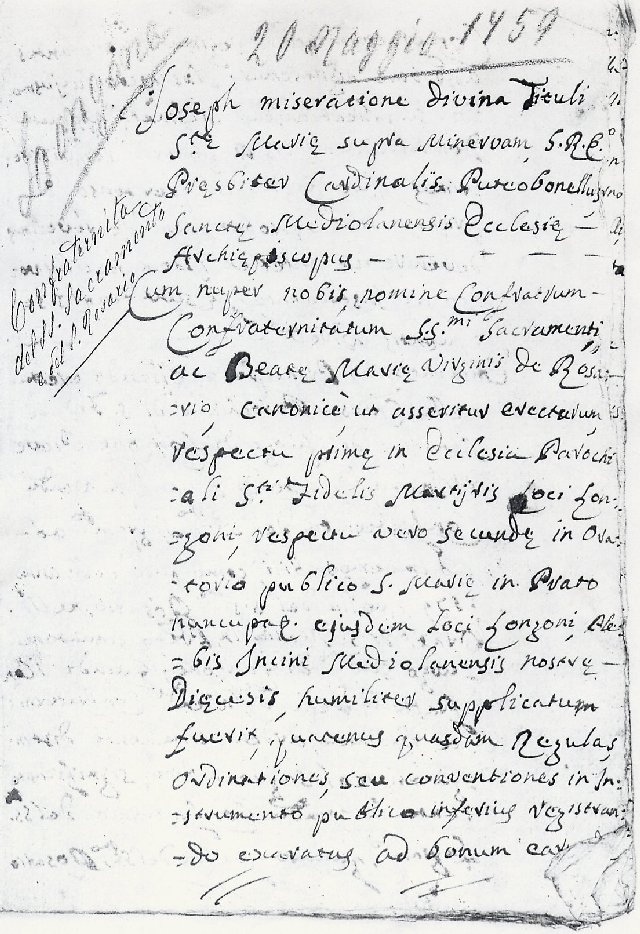 20 Maggio 1459
Longone
Confraternita
del SS. Sacramento
e del S. Rosario
Joseph miseratione divina Tituli
S.tę Marię supra Minervam, S. R. E.
Pręsbiter Cardinalis Puteobonellus
Sanctę Mediolanensis Ecclesię –
Archiępiscopus – – – –
Cum nuper nobis nomine Confratrum –
Confraternitatum S.S.mi Sacramenti,
ac Beatę Marię Virginis de Rosa-
=rio, canonicè ut asseritur erectarum
respectu primę in Ecclesia Parochi
=ali S.ti Fidelis Martÿris Loci Lon-
=goni, respectu vero secundę in Ora-
-torio publico S. Marię in Prato
nuncupaę. ejusdem Loci Longoni, Ple-
=bis Incini Mediolanensis nostrę –
Dięcesis, humiliter supplicatum
fuerit, quatenus quasdam Regulas,
ordinationes, seu conventiones in In-
=strumento publico inferius registran-
=do exaratas ad bonum ear